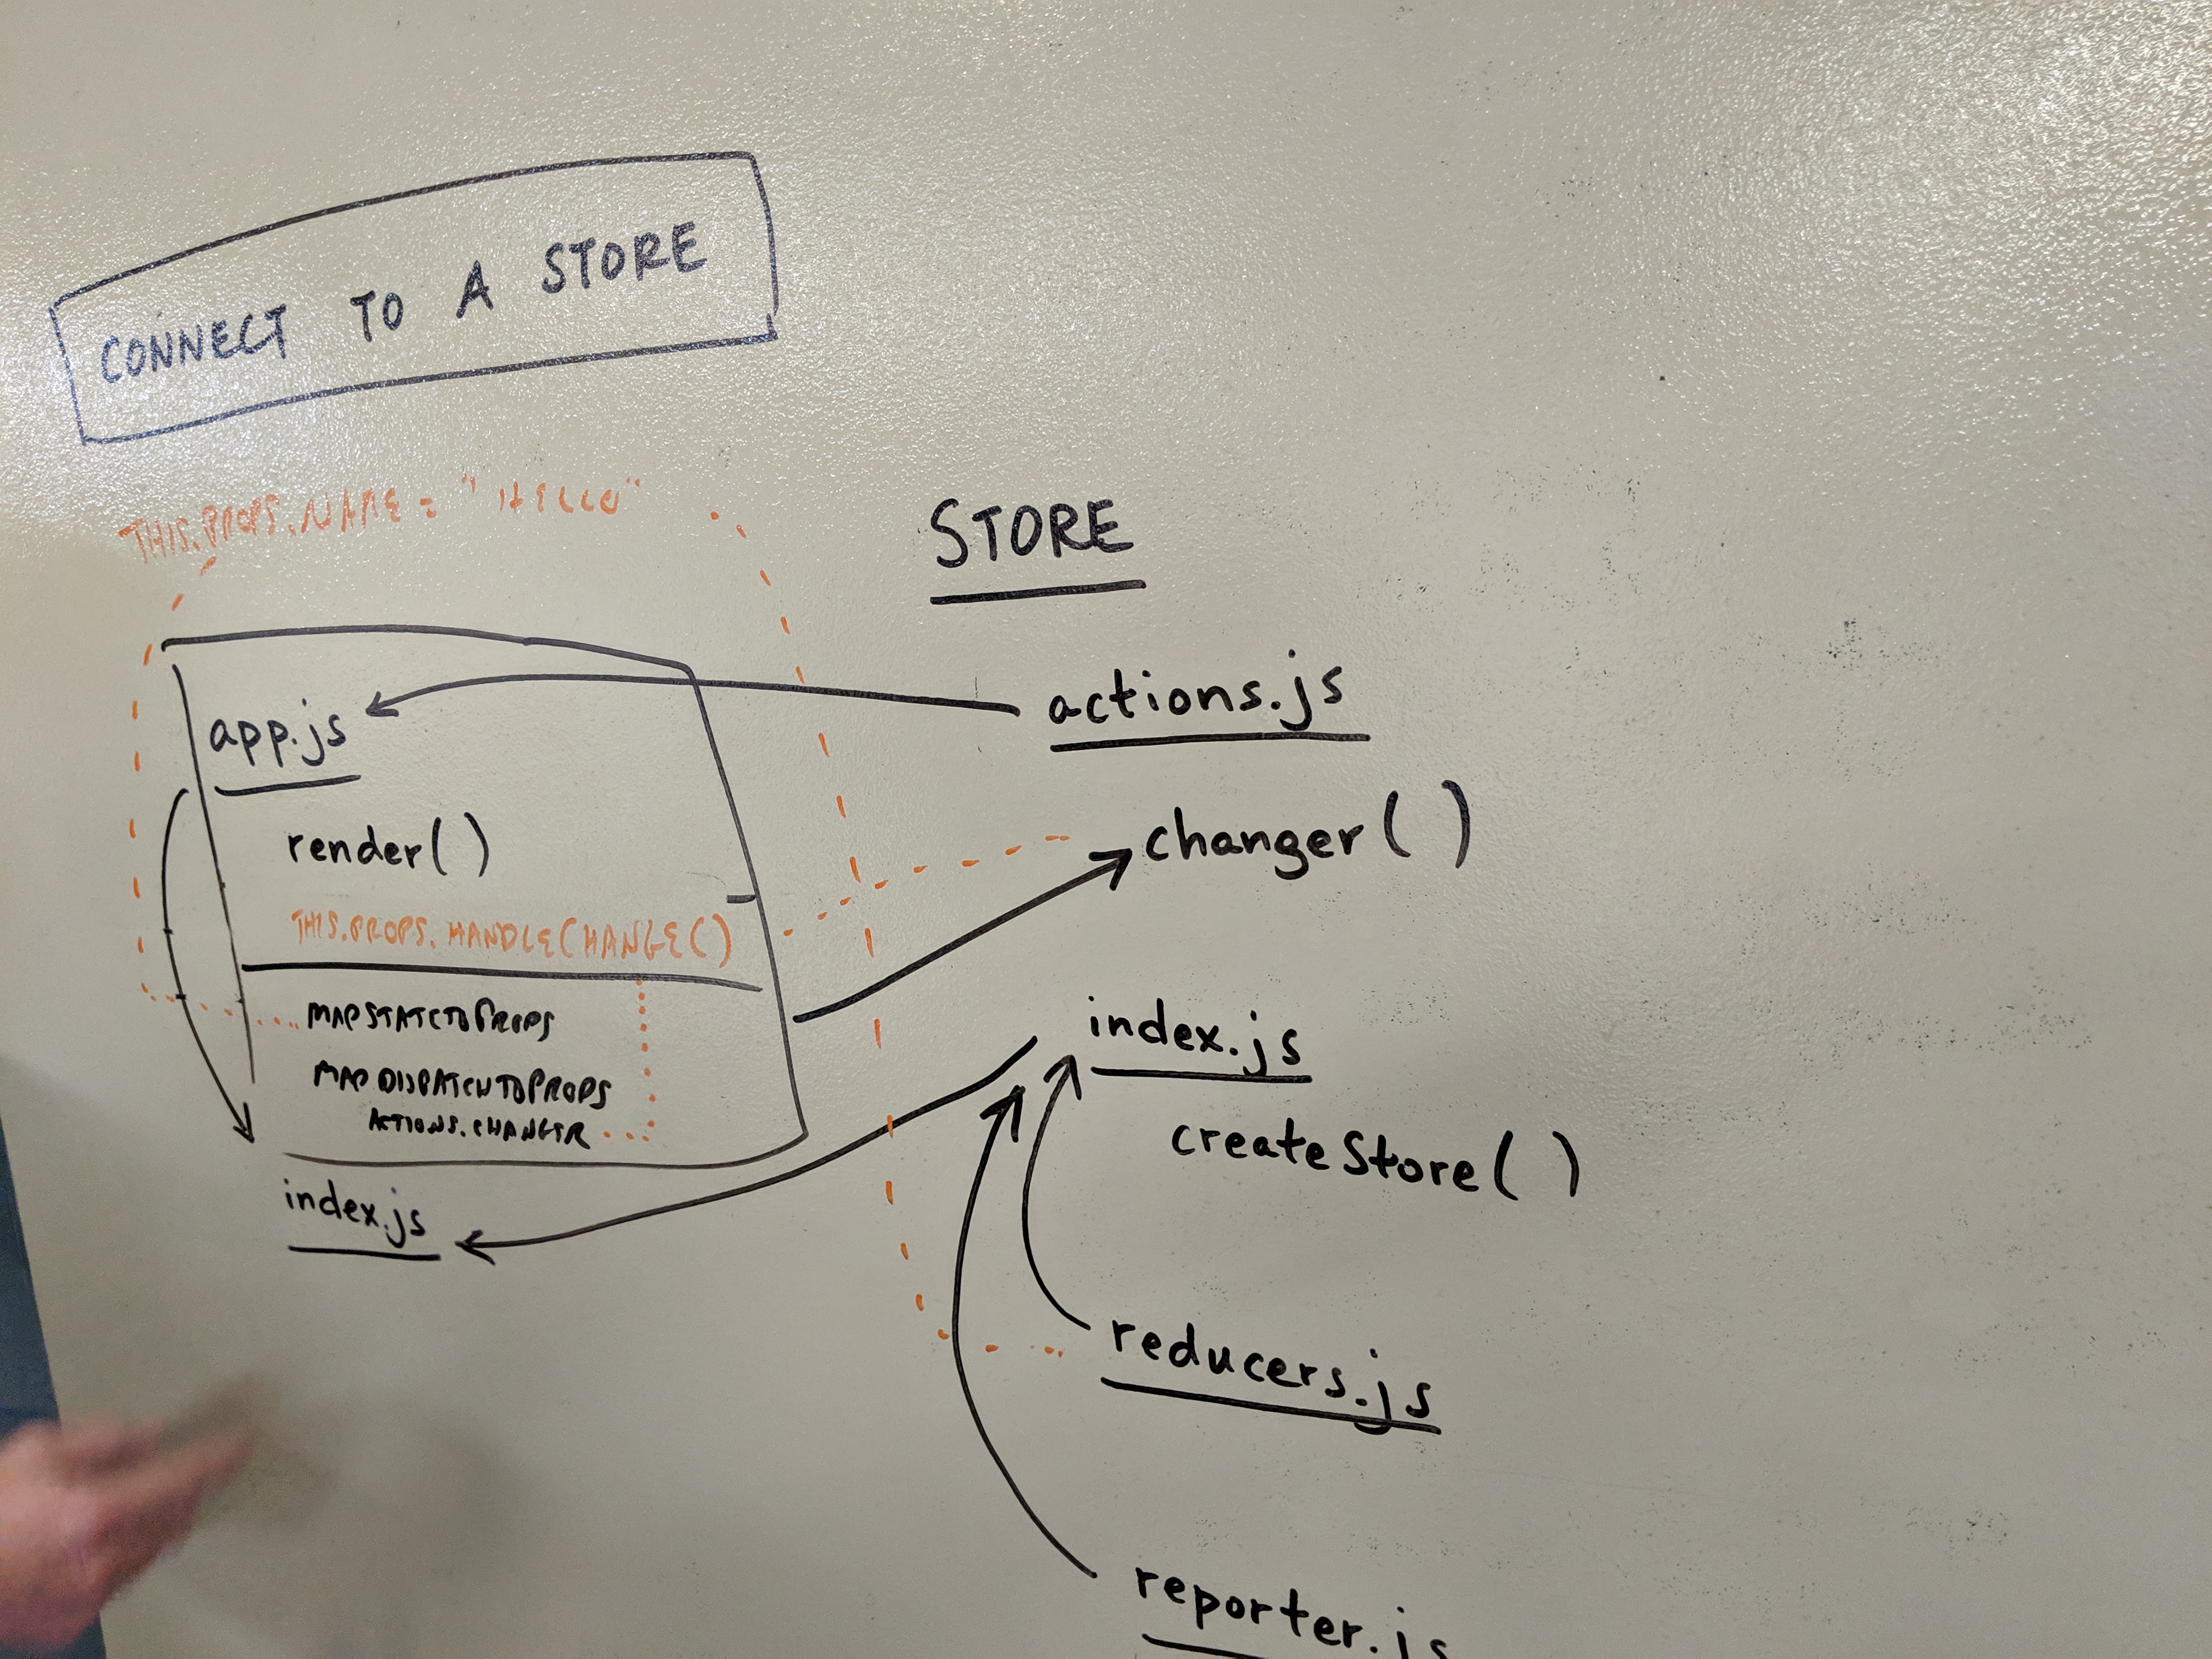 CONNECT TO A STORE
THIS.PROPS.NAME = "HELLO"
app.js
render()
THIS.PROPS.HANDLECHANGE()
MAPSTATETOPROPS
MAPDISPATCHTOPROPS
ACTIONS.CHANGER
index.js
STORE
actions.js
changer()
index.js
createStore()
reducers.js
reporter.js